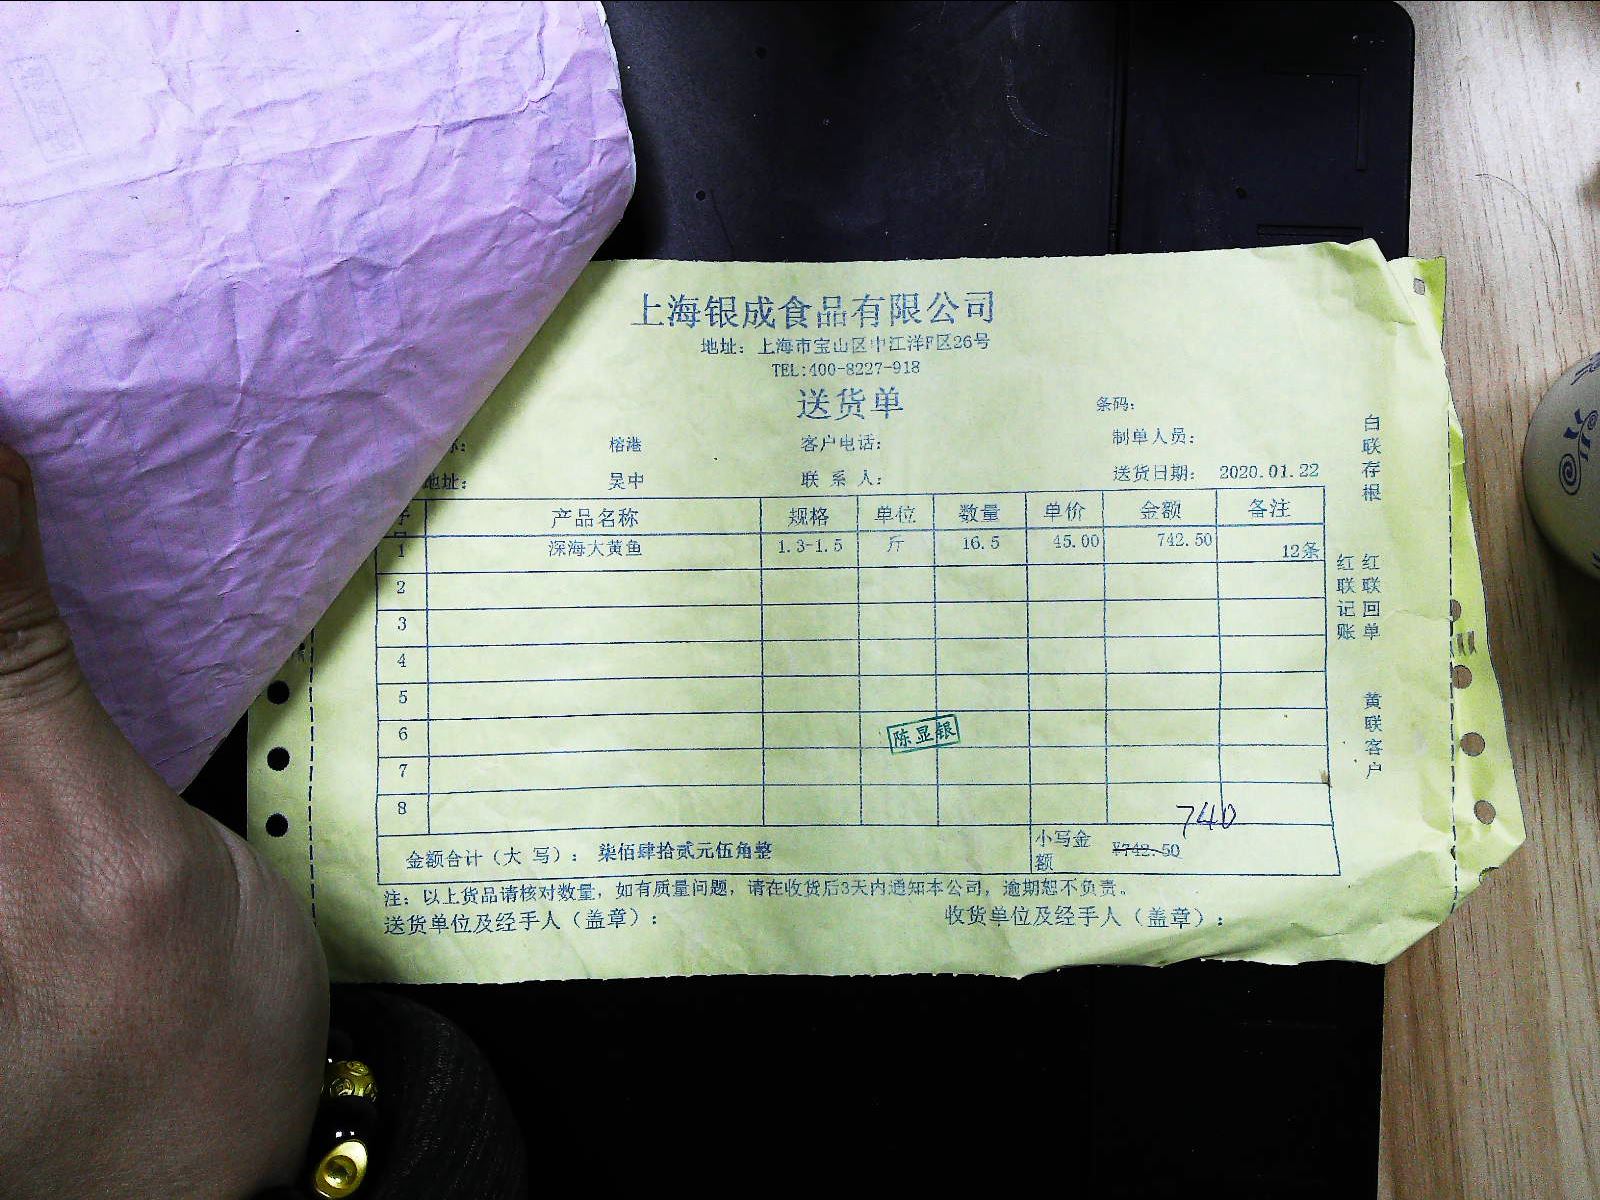 上海银成食品有限公司
地址：上海市宝山区中江洋F区26号
TEL:400-8227-918
送货单
条码：
称： 榕港 客户电话： 制单人员：
地址： 吴中 联系人： 送货日期： 2020.01.22
产品名称 规格 单位 数量 单价 金额 备注
1 深海大黄鱼 1.3-1.5 斤 16.5 45.00 742.50 12条
2
3
4
5
6
陈显银
7
8
740
金额合计（大写）： 柒佰肆拾贰元伍角整 小写金额 ¥742.50
注：以上货品请核对数量，如有质量问题，请在收货后3天内通知本公司，逾期恕不负责。
送货单位及经手人（盖章）： 收货单位及经手人（盖章）：
白联存根
红联记账
红联回单
黄联客户